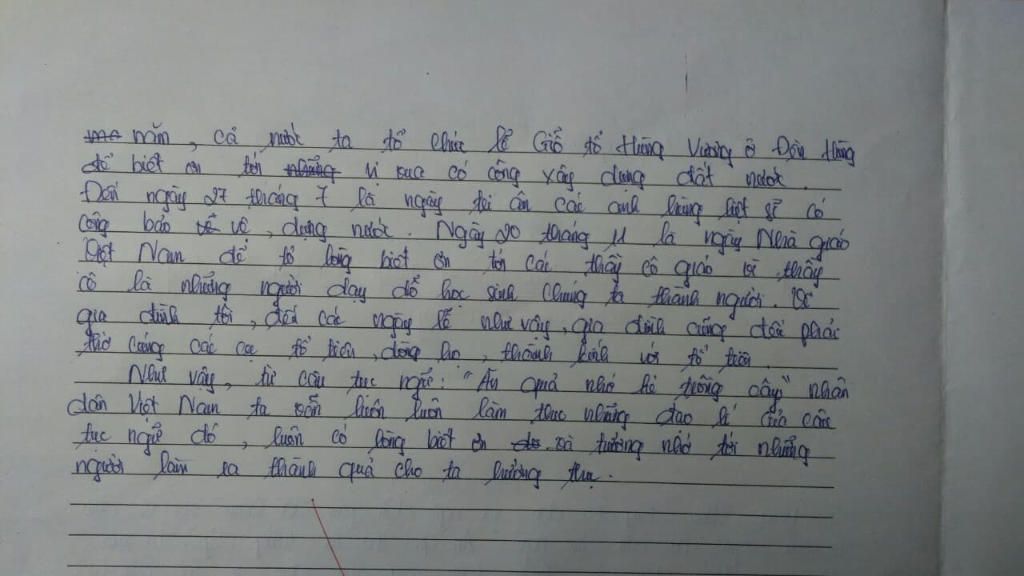 năm, cả nước ta tổ chức lễ Giỗ tổ Hùng Vương ở Đền Hùng
để biết ơn tới những vị vua có công xây dựng đất nước.
Đến ngày 27 tháng 7 là ngày tri ân các anh hùng liệt sĩ có
công bảo vệ, dựng nước. Ngày 20 tháng 11 là ngày Nhà giáo
Việt Nam để tỏ lòng biết ơn tới các thầy cô giáo vì thầy
cô là những người dạy dỗ học sinh chúng ta thành người. Về
gia đình tôi, đến các ngày lễ như vậy, gia đình cũng đều phải
thờ cúng các cụ tổ tiên, dòng họ, thành kính với tổ tiên.
Như vậy, từ câu tục ngữ: "Ăn quả nhớ kẻ trồng cây" nhân
dân Việt Nam ta vẫn luôn luôn làm theo những đạo lí của câu
tục ngữ đó, luôn có lòng biết ơn và tưởng nhớ tới những
người làm ra thành quả cho ta hưởng thụ.